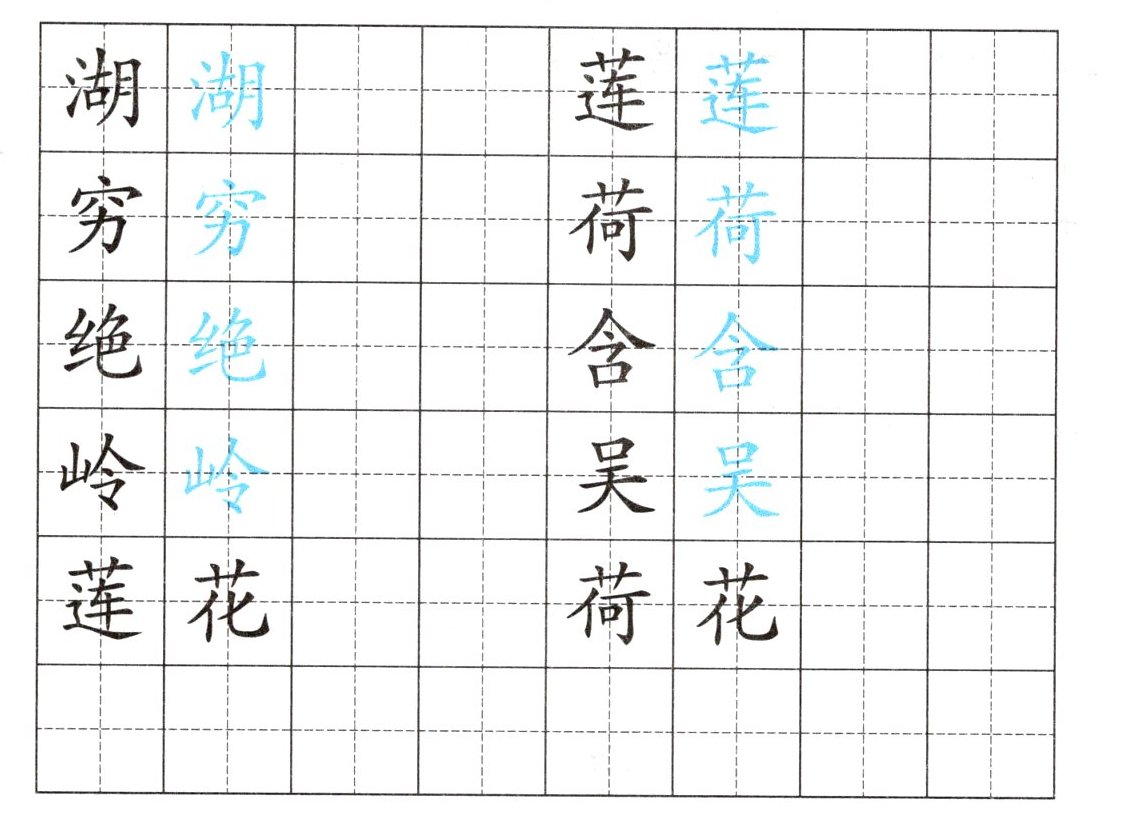 湖 湖 莲 莲
穷 穷 荷 荷
绝 绝 含 含
岭 岭 吴 吴
莲 花 荷 花